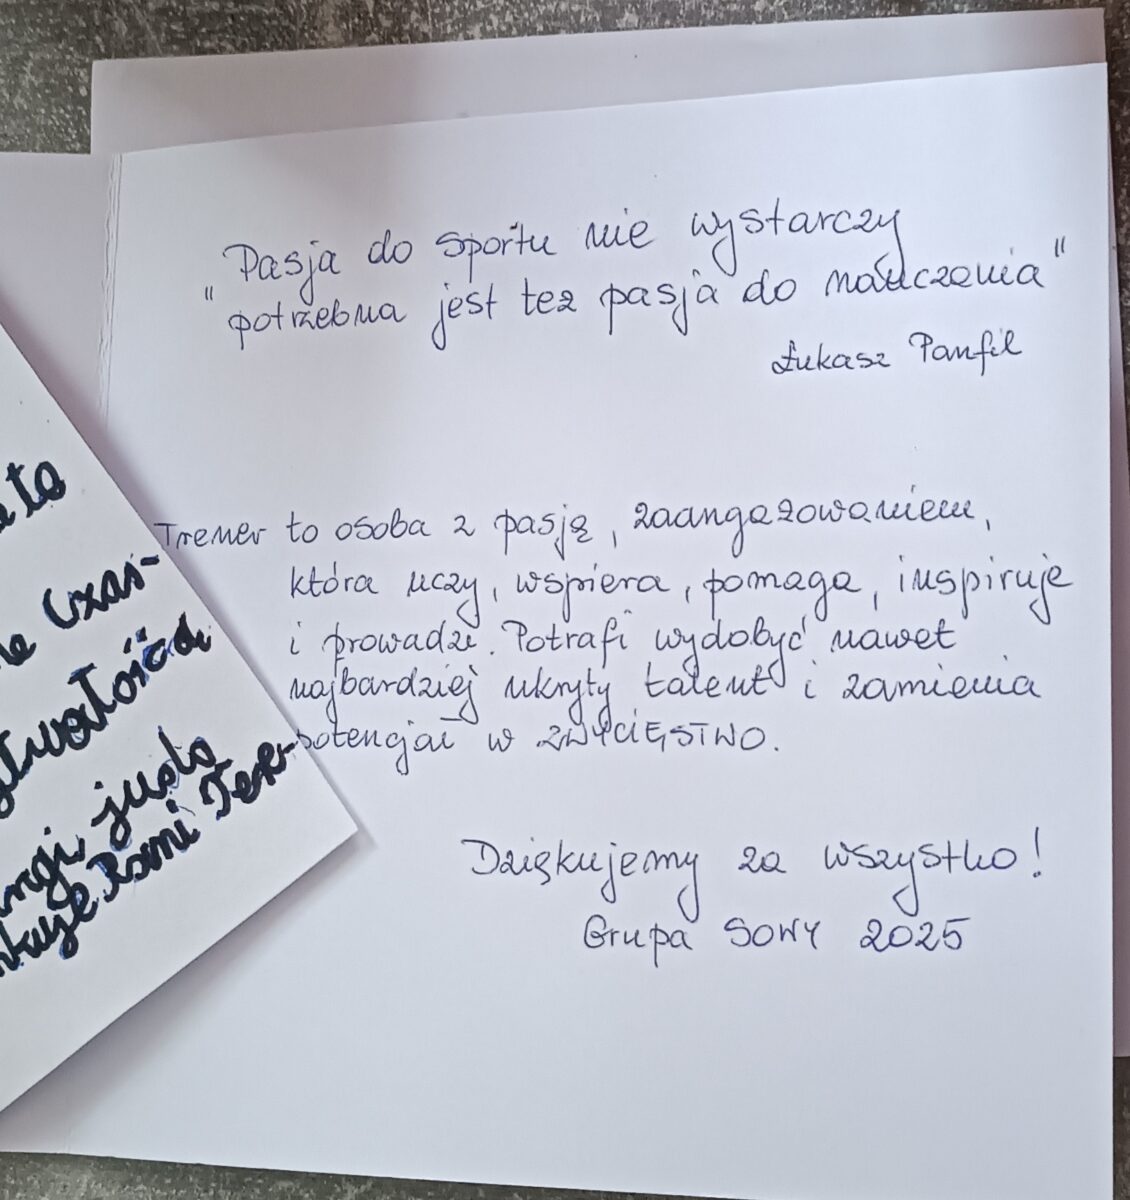 "Pasja do sportu nie wystarczy
potrzebna jest też pasja do nauczania"
Łukasz Panfil
Trener to osoba z pasją, zaangażowaniem,
która uczy, wspiera, pomaga, inspiruje
i prowadzi. Potrafi wydobyć nawet
najbardziej ukryty talent i zamienia
potencjał w ZWYCIĘSTWO.
Dziękujemy za wszystko!
Grupa SOWY 2025